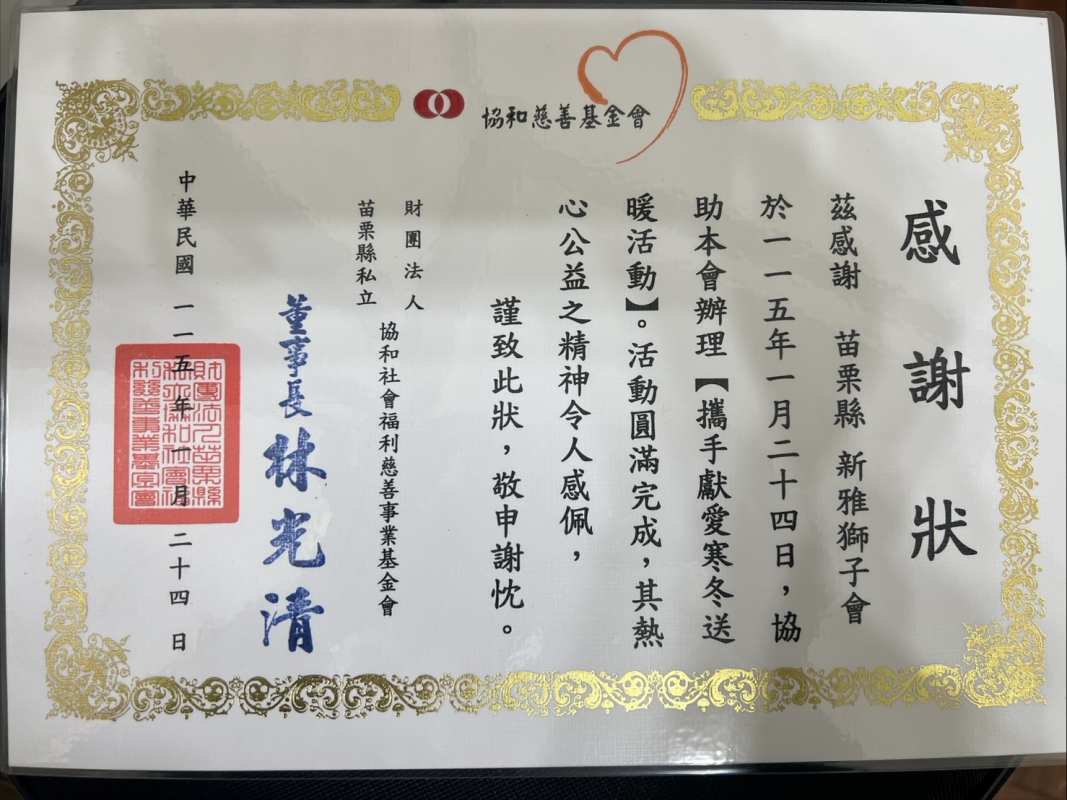 協和慈善基金會
感謝狀
茲感謝 苗栗縣 新雅獅子會
於一一五年一月二十四日，協
助本會辦理【攜手獻愛寒冬送
暖活動】。活動圓滿完成，其熱
心公益之精神令人感佩，
謹致此狀，敬申謝忱。
財團法人
苗栗縣私立
協和社會福利慈善事業基金會
董事長 林光清
中華民國 一一五年一月二十四日
財團法人苗栗縣
私立協和社會福
利慈善事業基金會